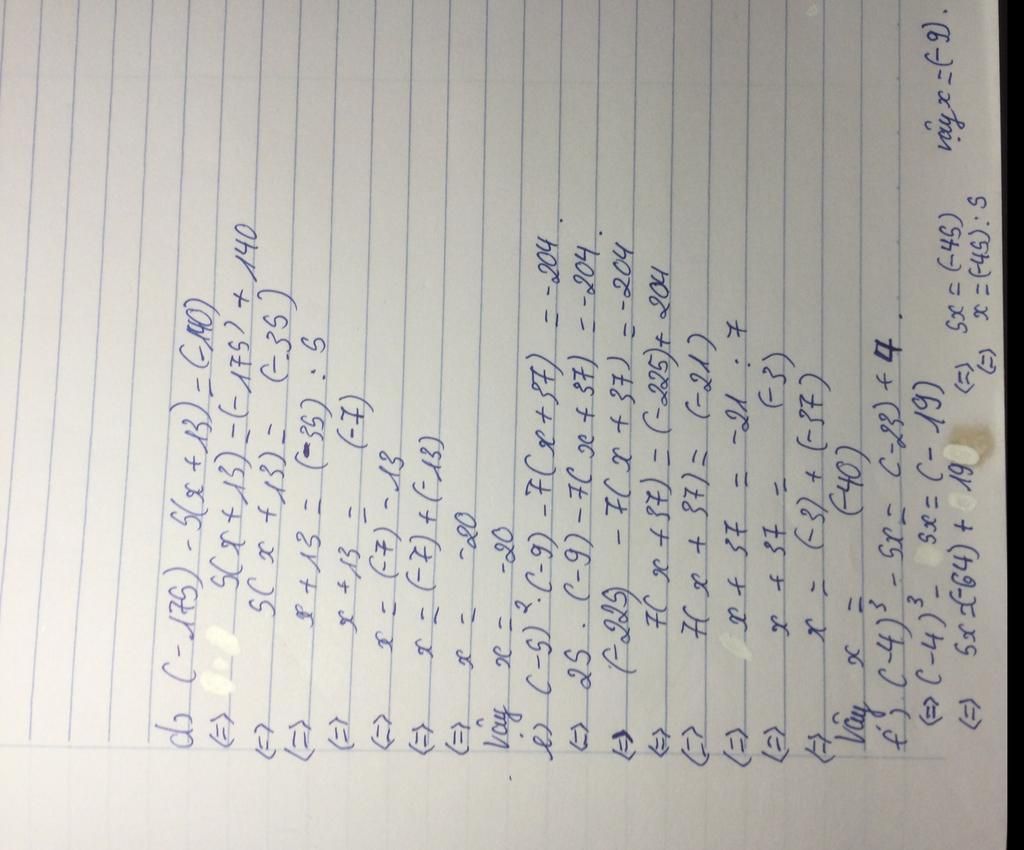 d) (-175) - 5(x + 13) = (-140)
(=) 5(x + 13) = (-175) + 140
(=) 5(x + 13) = (-35)
(=) x + 13 = (-35) : 5
(=) x + 13 = (-7)
(=) x = (-7) - 13
(=) x = (-7) + (-13)
(=) x = -20
Vậy x = -20
e) (-5)² . (-9) - 7(x + 37) = -204
(=) 25 . (-9) - 7(x + 37) = -204
(=) (-225 - 7(x + 37) = -204
(=) 7(x + 37) = (-225) + 204
(=) 7(x + 37) = (-21)
(=) x + 37 = -21 : 7
(=) x + 37 = (-3)
(=) x = (-3) + (-37)
Vậy x = (-40)
f) (-4)³ - 5x = (-23) + 4
(=) (-4)³ - 5x = (-19)
(=) 5x = (-64) + 19
(=) 5x = (-45)
(=) x = (-45) : 5
Vậy x = (-9).